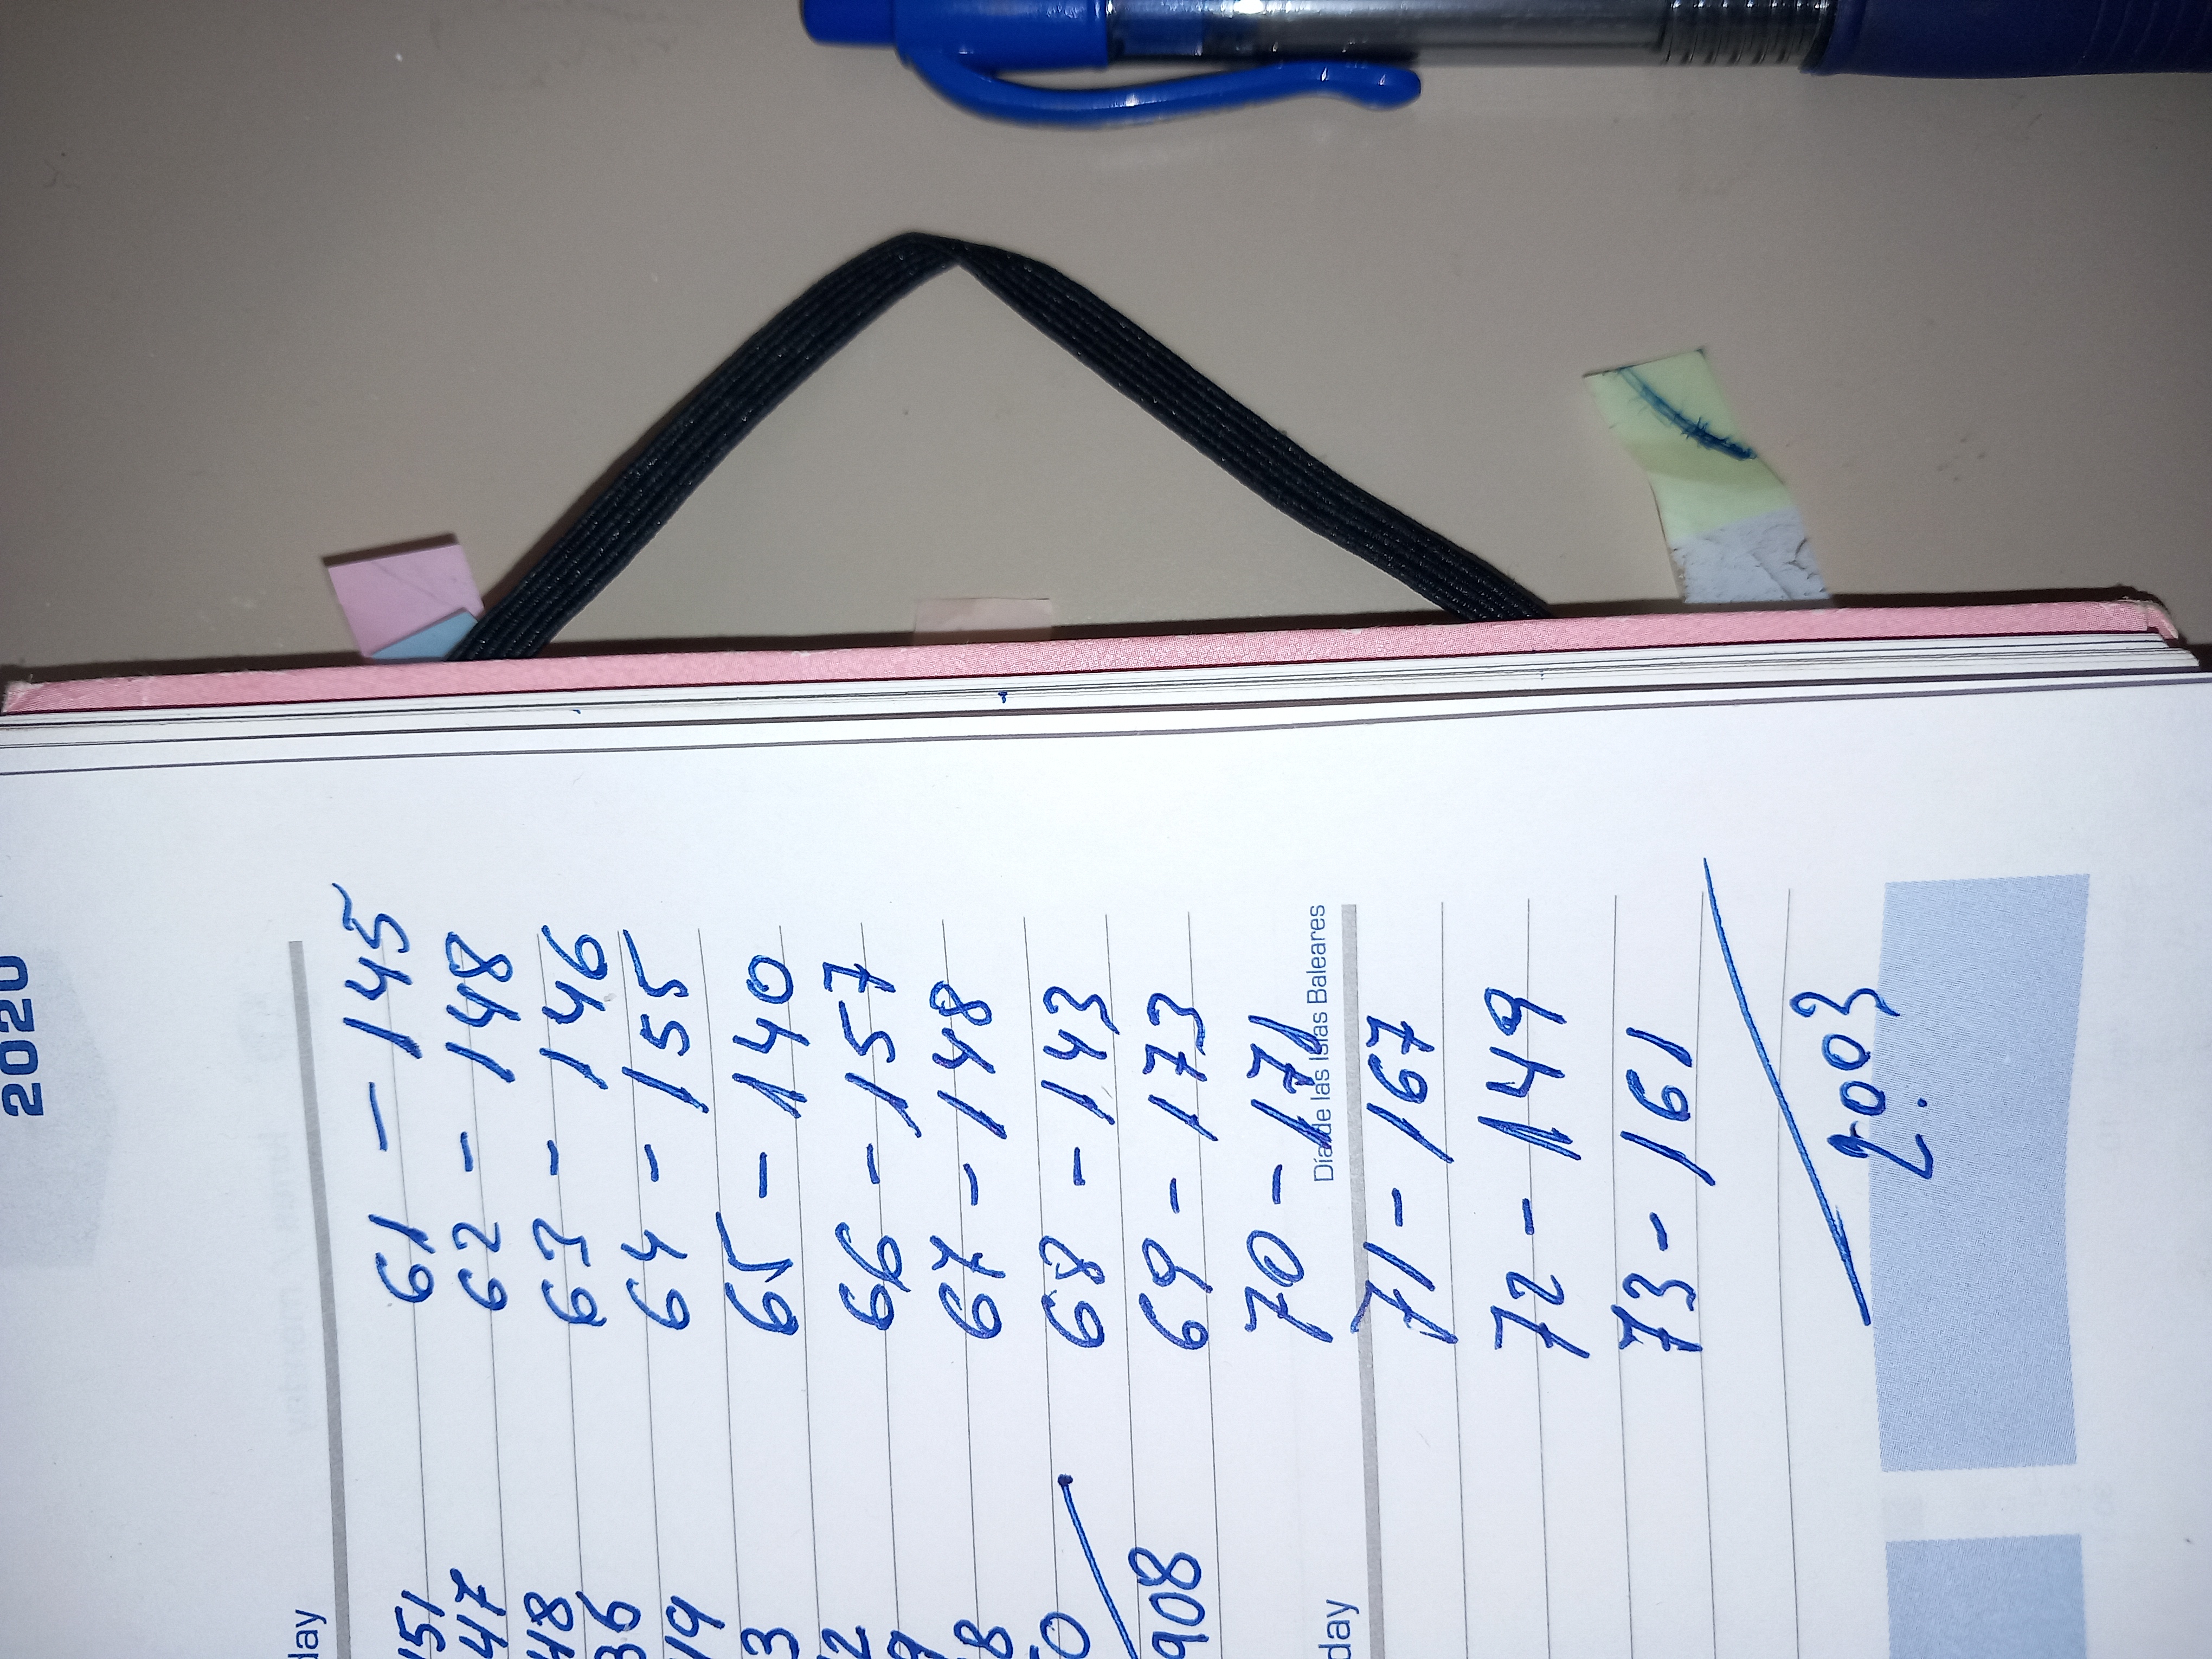 2020
61 - 145
62 - 148
63 - 146
64 - 155
65 - 140
66 - 157
67 - 148
68 - 143
69 - 173
70 - 171
Día de las Islas Baleares
71 - 167
72 - 149
73 - 161
2.003
day
151
47
48
36
19
3
2
9
8
0
908
day